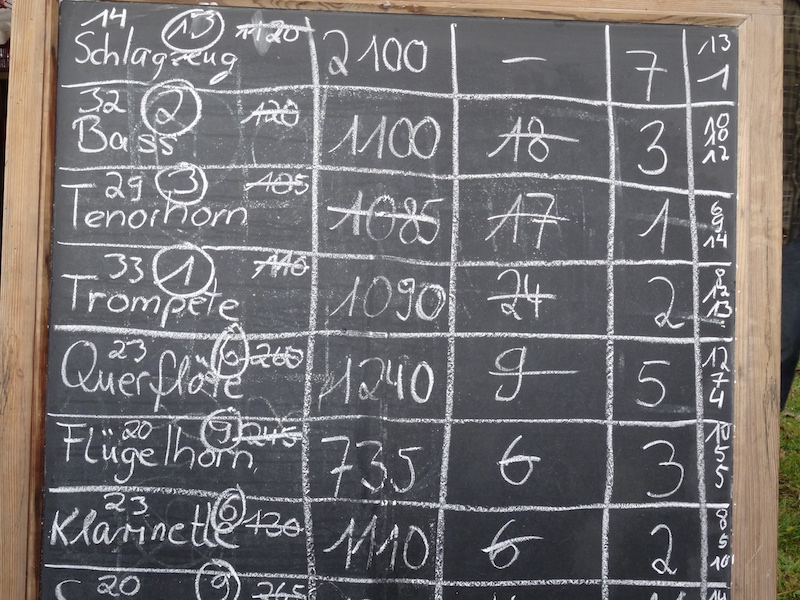 14 13 1120
Schlagzeug 2100 - 7 13 1
32 2 120
Bass 1100 18 3 10 10 12
29 3 105
Tenorhorn 1085 17 1 6 9 14
33 1 110
Trompete 1090 24 2 8 12 13
23 6 265
Querflöte 1240 9 5 12 7 4
20 9 245
Flügelhorn 735 6 3 10 5 5
23 6 130
Klarinette 1110 6 2 8 5 10
20 9 265